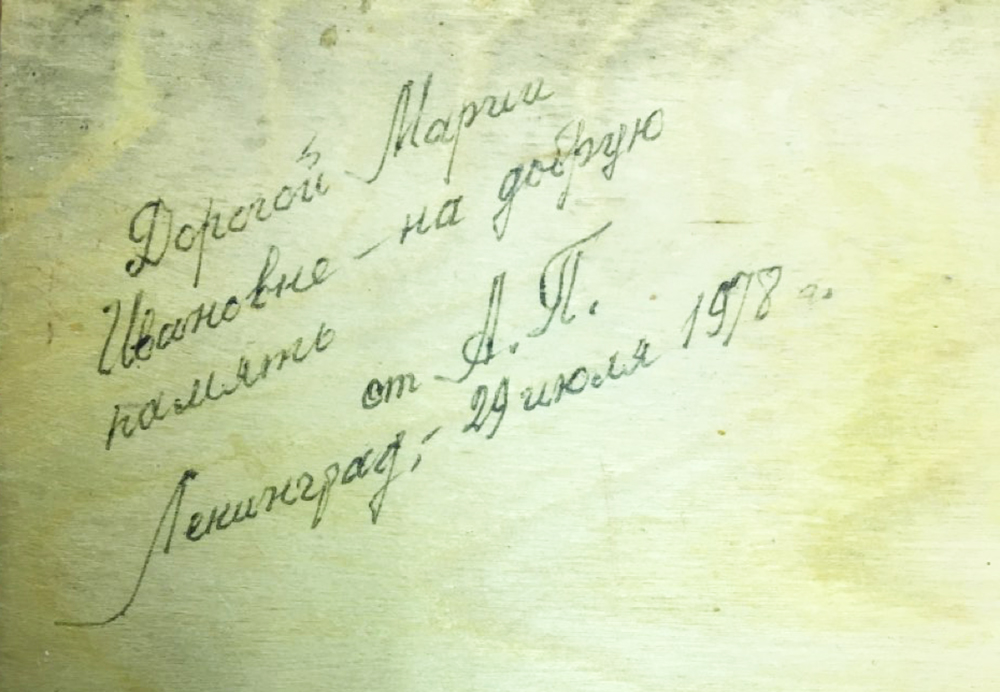 Дорогой Марии
Ивановне – на добрую
память
от А. П.
Ленинград, – 29 июля 1978 г.